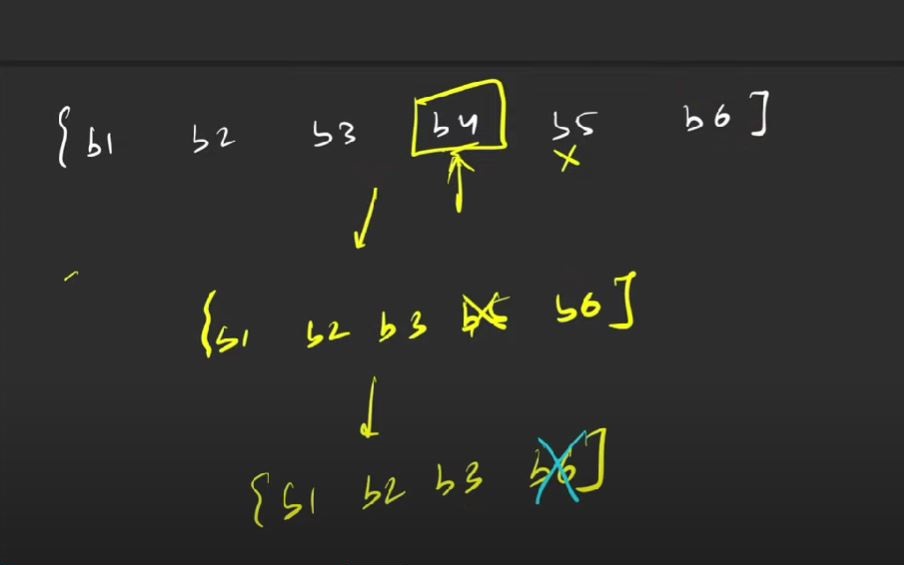 {b1 b2 b3 b4 b5 b6]
x
{b1 b2 b3 b5 b6]
{b1 b2 b3 b6]